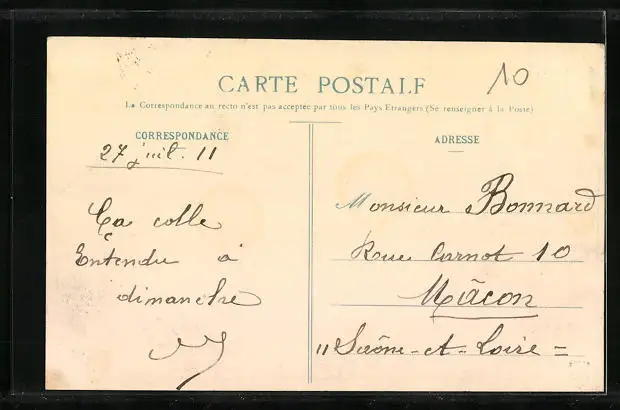 10
CARTE POSTALE
La Correspondance au recto n'est pas acceptée par tous les Pays Etrangers (Se renseigner à la Poste)
CORRESPONDANCE
27 juil. 11
Ça colle
Entendu à
dimanche
ADRESSE
Monsieur Bonnard
Rue Carnot 10
Mâcon
11 Saône-et-Loire =